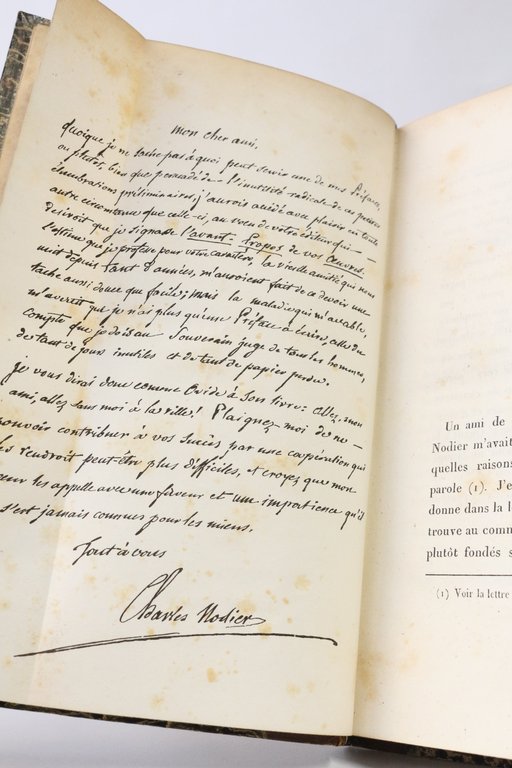 mon cher ami,
Quoique je ne sache pas à quoi peut servir une de mes Préfaces,
ou plutôt, bien que persuadé de l'inutilité radicale de ces pauvres
élucubrations préliminaires, j'aurois cédé avec plaisir en toute
autre circonstance que celle-ci, au vœu de votre éditeur qui
desiroit que je signasse l'avant-Propos de vos Œuvres.
l'estime que je professe pour votre caractère, la vieille amitié qui nous
unit depuis tant d'années, m'auroient fait de ce devoir une
tache aussi douce que facile; mais la maladie qui m'accable,
m'avertit que je n'ai plus qu'une Préface à écrire, celle du
compte que je dois au Souverain juge de tous les hommes,
de tant de jours inutiles et de tant de papier perdu.
je vous dirai donc comme Ovide à son livre: allez, mon
ami, allez sans moi à la ville! Plaignez-moi de ne
pouvoir contribuer à vos succès par une coopération qui
les rendroit peut-être plus difficiles, et croyez que mon
cœur les appelle avec une faveur et une impatience qu'il
s'est jamais connues pour les miens.
Tout à vous
Charles Nodier
Un ami de
Nodier m'avait
quelles raisons
parole (1). J'e
donne dans la l
trouve au comm
plutôt fondés s
(1) Voir la lettre